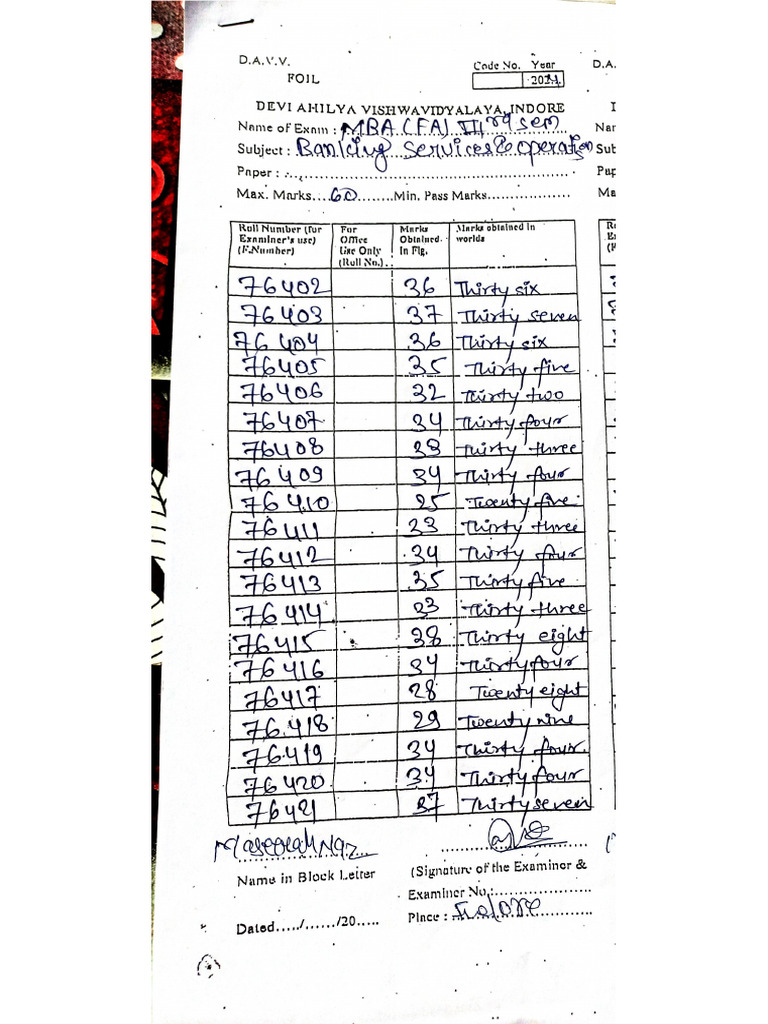 D.A.V.V.
FOIL
Code No. Year
D.A.
DEVI AHILYA VISHWAVIDYALAYA, INDORE
Name of Exam : MBA (FA) III rd sem
Nar
Subject : Banking Services & operation
Sub
Paper :
Pap
Max. Marks....60........Min. Pass Marks
Ma
Roll Number (for Examiner's use) (F-Number) For Office Use Only (Roll No.) Marks Obtained In Fig. Marks obtained in worlds
76402 36 Thirty six
76403 37 Thirty seven
76404 36 Thirty six
76405 35 Thirty five
76406 32 Thirty two
76407 34 Thirty four
76408 33 Thirty three
76409 34 Thirty four
76410 25 Twenty five
76411 33 Thirty three
76412 34 Thirty four
76413 35 Thirty five
76414 33 Thirty three
76415 38 Thirty eight
76416 34 Thirty four
76417 28 Twenty eight
76418 29 Twenty nine
76419 34 Thirty four
76420 34 Thirty four
76421 37 Thirty seven
Name in Block Letter
(Signature of the Examiner &
Examiner No.:
Dated...../....../20.....
Place : Indore